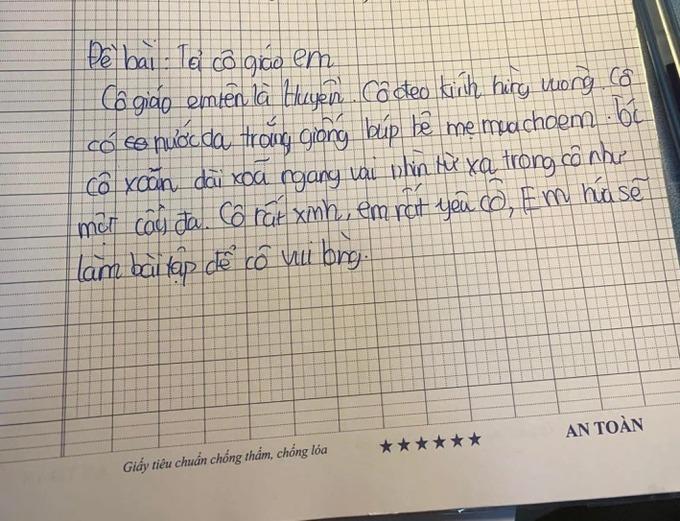 Đề bài: Tả cô giáo em
Cô giáo em tên là Huyền. Cô đeo kính hìng vuong. Cô
có nước da trắng giống búp bê mẹ mua cho em. tóc
cô xoăn dài xoã ngang vai nhìn từ xa trong cô như
một cây đa. Cô rất xinh, em rất yêu cô, Em hứa sẽ
làm bài tập để cô vui lòng.
Giấy tiêu chuẩn chống thấm, chống lóa
★★★★★★
AN TOÀN